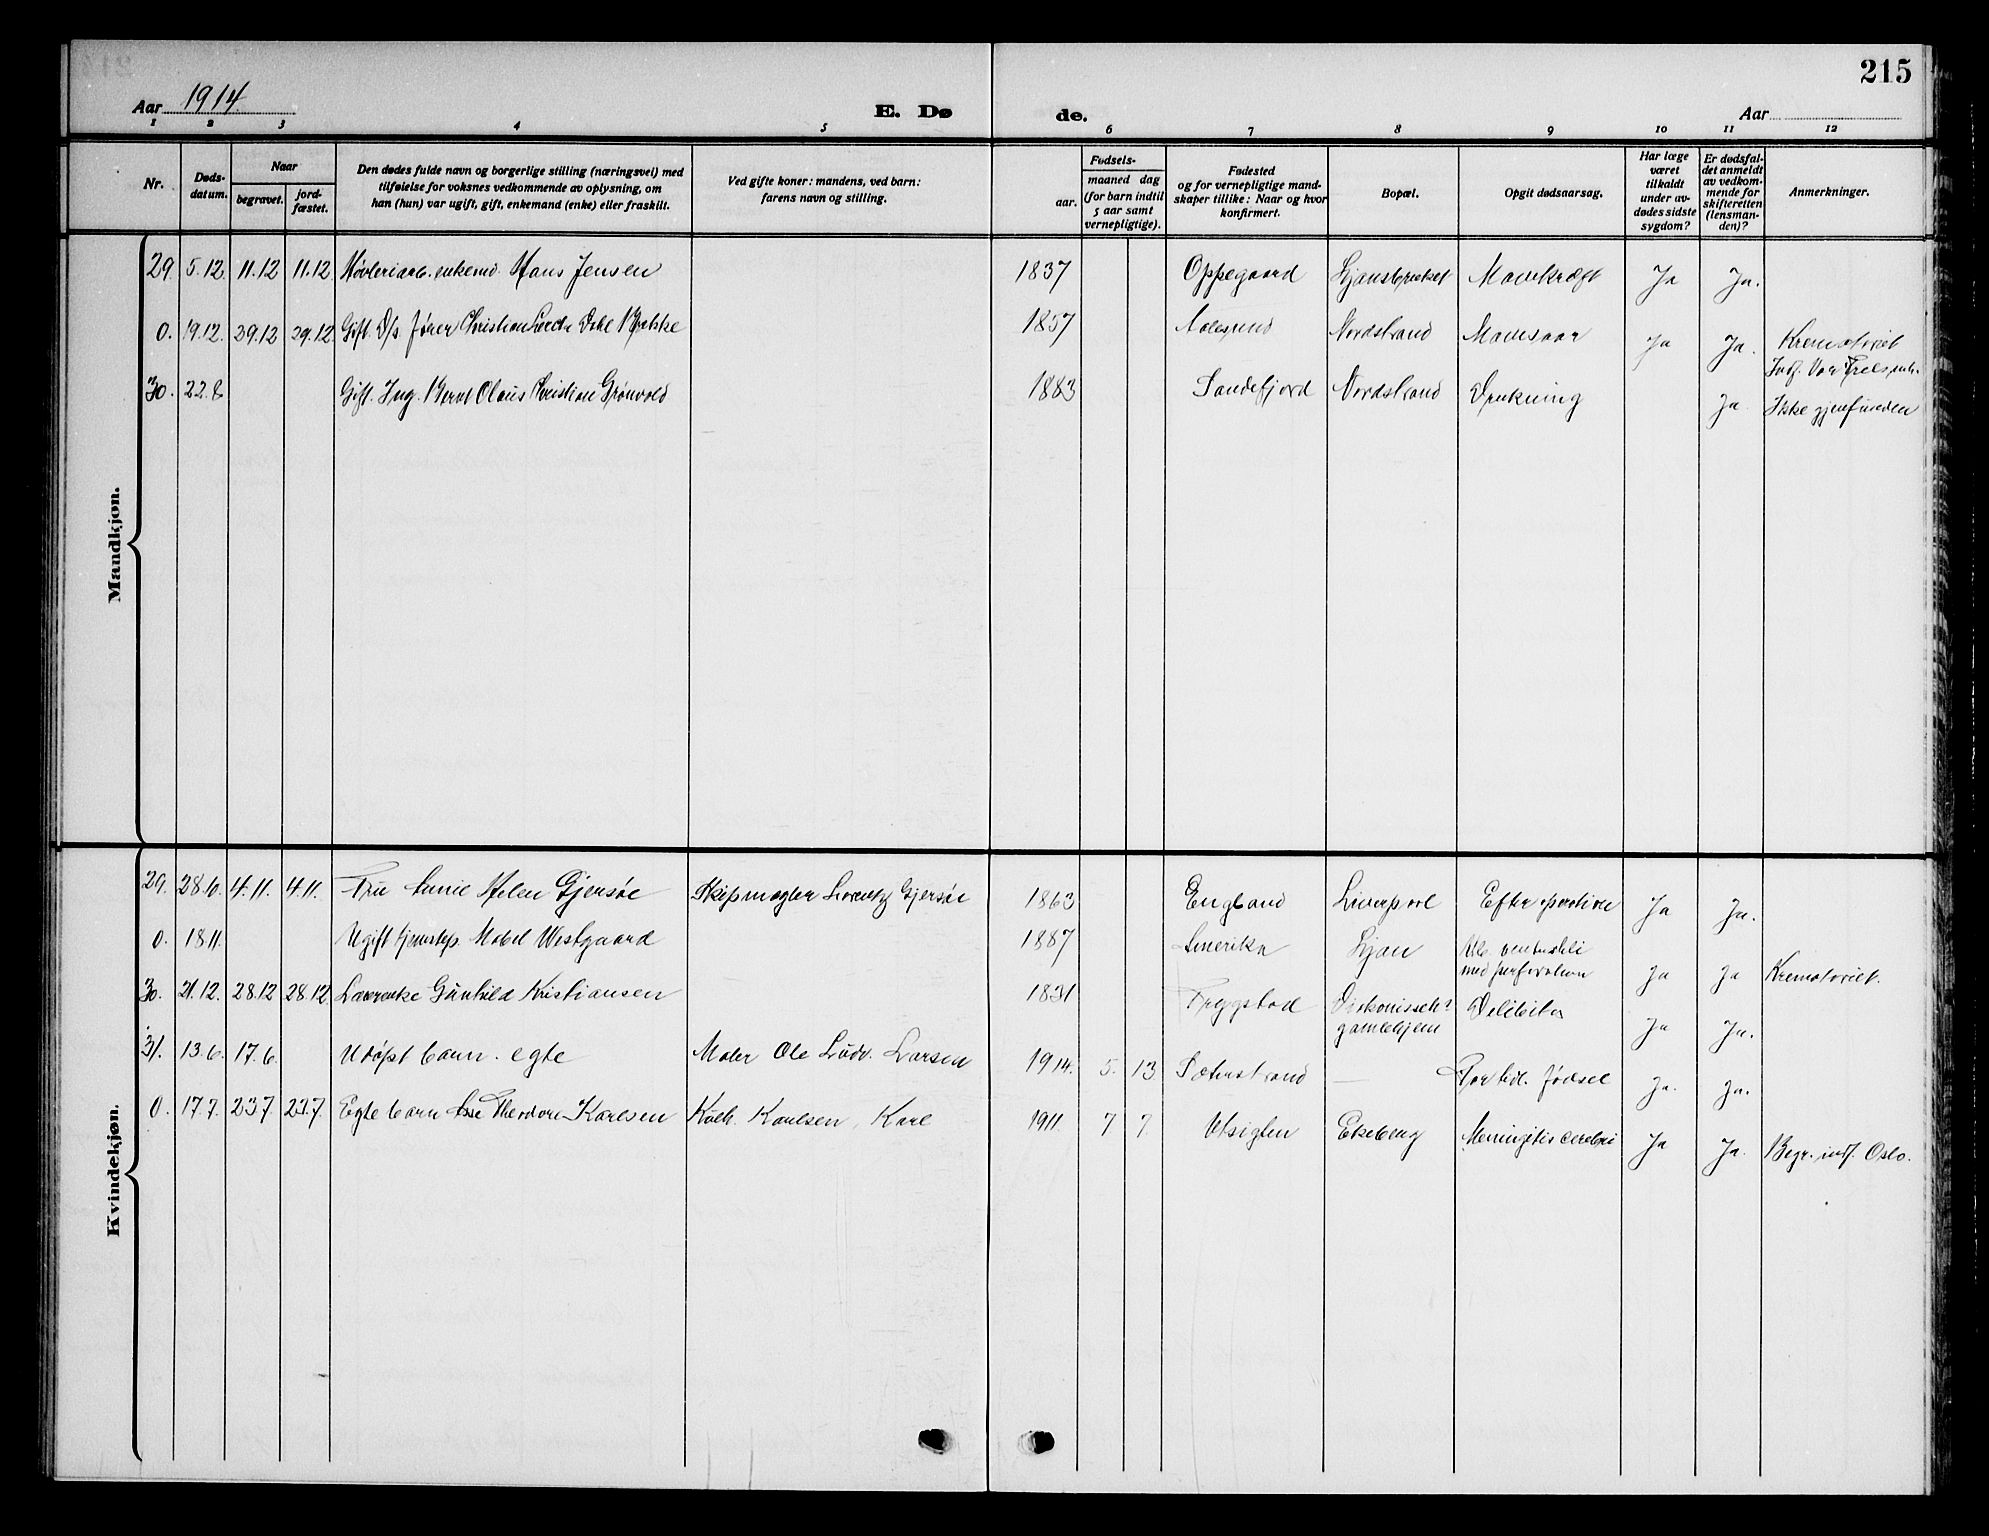 215
Aar 1914
E. Dø
de.
Aar
1 2 3 4 5 6 7 8 9 10 11 12
Nr.
Døds-
datum.
Naar
begravet.
jord-
fæstet.
Den dødes fulde navn og borgerlige stilling (næringsvei) med
tilføielse for voksnes vedkommende av oplysning, om
han (hun) var ugift, gift, enkemand (enke) eller fraskilt.
Ved gifte koner: mandens, ved barn:
farens navn og stilling.
Fødsels-
aar.
maaned dag
(for barn indtil
5 aar samt
vernepligtige).
Fødested
og for vernepligtige mand-
skaper tillike: Naar og hvor
konfirmert.
Bopæl.
Opgit dødsaarsag.
Har læge
været
tilkaldt
under av-
dødes sidste
sygdom?
Er dødsfal-
det anmeldt
av vedkom-
mende for
skifteretten
(lensman-
den)?
Anmerkninger.
Mandkjøn.
29. 5.12 11.12 11.12 Høvleriarb. enkemd. Hans Jensen 1837 Oppegaard Ljansbruket Mavekræft Ja Ja.
0. 19.12. 29.12 29.12. Gift. Christian 1857 Aalesund Nordstrand Mavesaar Ja Ja. Krematoriet
30. 22.8 Gift. Ing. Bernt Olaus Christian Grønvold 1883 Sandefjord Nordstrand Drukning Ja Ikke gjenfunden
Kvindekjøn.
29. 28.10. 4.11. 4.11. Fru Annie Helen Gjersøe Skipsmægler Lorentz Gjersøe 1863 England Liverpool Efter operation Ja Ja.
0. 18.11. Ugift tjenstep. Mabel Westgaard 1887 Amerika Ljan
med perforation Ja Ja Krematoriet.
30. 21.12. 28.12 28.12 Laurenke Gunhild Kristiansen 1831 Trygstad Diakonisseh?
gamlehjem Debilitas Ja Ja.
31. 13.6. 17.6. Udøpt barn. egte Maler Ole Ludv. Larsen 1914. 5. 13 Sæterstrand — For tidl. fødsel Ja. Ja.
0. 17.7. 23.7 23.7. Egte barn Theodora Karlsen Karlsen, Karl 1911. 7 7. Utsigten Ekeberg Meningitis cerebri Ja Ja. Begr. indf. Oslo.